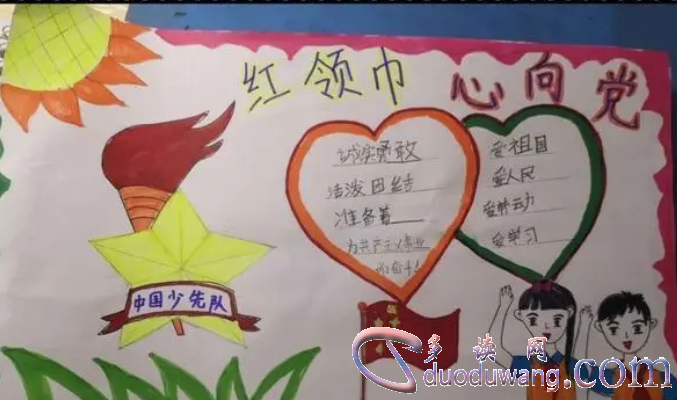 红领巾 心向党
诚实勇敢
活泼团结
准备着
为共产主义事业
而奋斗!
爱祖国
爱人民
爱劳动
爱学习
中国少先队
多读网
duoduwang.com